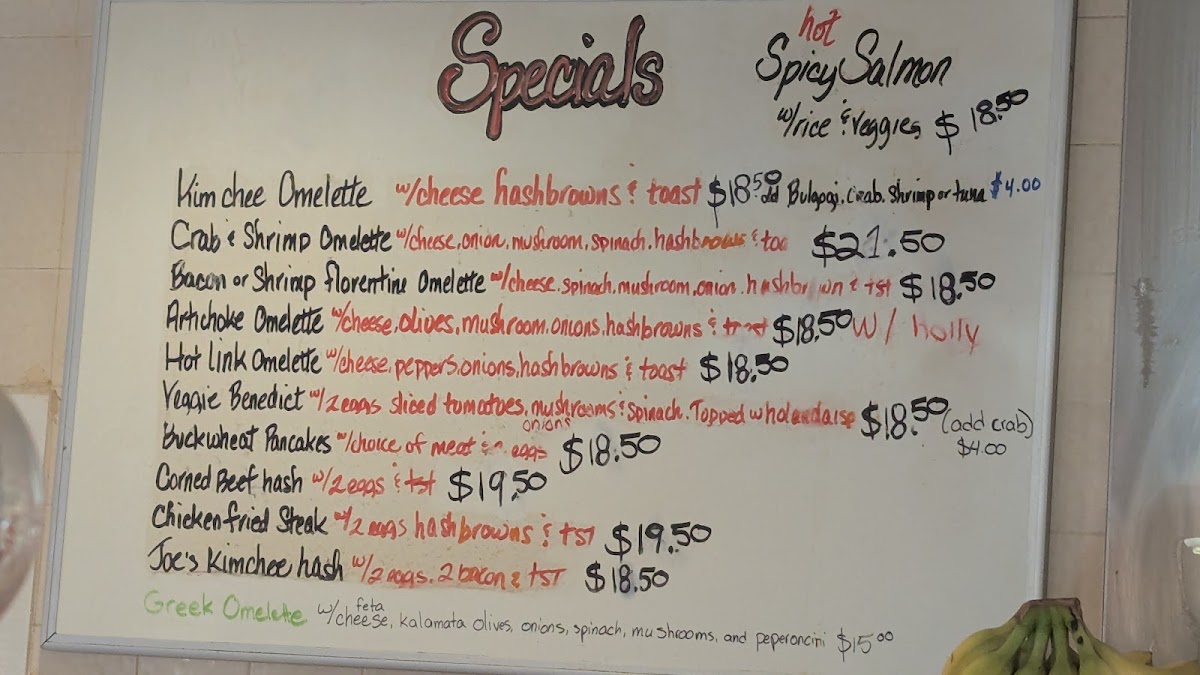 Specials
hot
Spicy Salmon
w/rice & veggies $18.50
Kimchee Omelette w/cheese hashbrowns & toast $18.50 add Bulgogi, Crab, Shrimp or tuna $4.00
Crab & Shrimp Omelette w/cheese, onion, mushroom, spinach, hashbrowns & toa $21.50
Bacon or Shrimp florentine Omelette w/cheese, spinach, mushroom, onion, hashbrown & tst $18.50
Artichoke Omelette w/cheese, olives, mushroom, onions, hashbrowns & toast $18.50 w/ holly
Hot link Omelette w/cheese, peppers, onions, hashbrowns & toast $18.50
Veggie Benedict w/2 eggs sliced tomatoes, mushrooms & Spinach. Topped w holandaise $18.50 (add crab)
onions
$4.00
Buckwheat Pancakes w/choice of meat & eggs $18.50
Corned Beef hash w/2 eggs & tst $19.50
Chicken fried Steak w/2 eggs hashbrowns & tst $19.50
Joe's Kimchee hash w/2 eggs, 2 bacon & tst $18.50
feta
Greek Omelette w/cheese, kalamata olives, onions, spinach, mushrooms, and peperoncini $15.00